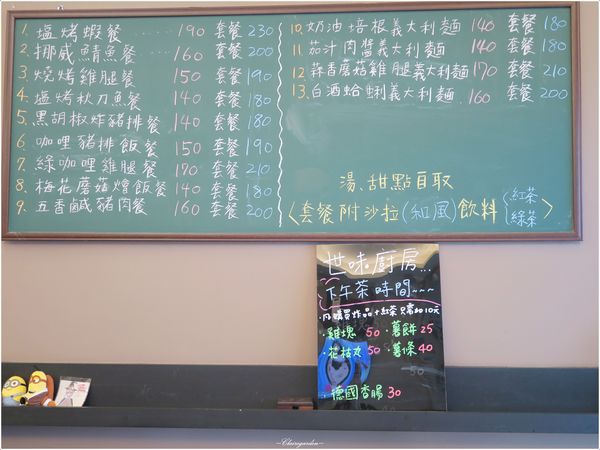 1. 塩烤蝦餐 ..... 190 套餐 230
2. 挪威鯖魚餐 160 套餐 200
3. 燒烤雞腿餐 150 套餐 190
4. 塩烤秋刀魚餐 140 套餐 180
5. 黑胡椒炸豬排餐 140 套餐 180
6. 咖哩豬排飯餐 150 套餐 190
7. 綠咖哩雞腿餐 170 套餐 210
8. 梅花蘑菇燴飯餐 140 套餐 180
9. 五香鹹豬肉餐 160 套餐 200
10. 奶油培根義大利麵 140 套餐 180
11. 茄汁肉醬義大利麵 140 套餐 180
12. 蒜香蘑菇雞腿義大利麵 170 套餐 210
13. 白酒蛤蜊義大利麵. 160 套餐 200
湯、甜點自取
<套餐附沙拉(和風)飲料(紅茶 綠茶)>
世味廚房...
下午茶時間~~~
·凡購買炸品+紅茶只需加10元
·雞塊 50 ·薯餅 25
·花枝丸 50 ·薯條 40
·德國香腸 30
~Chairegarden~